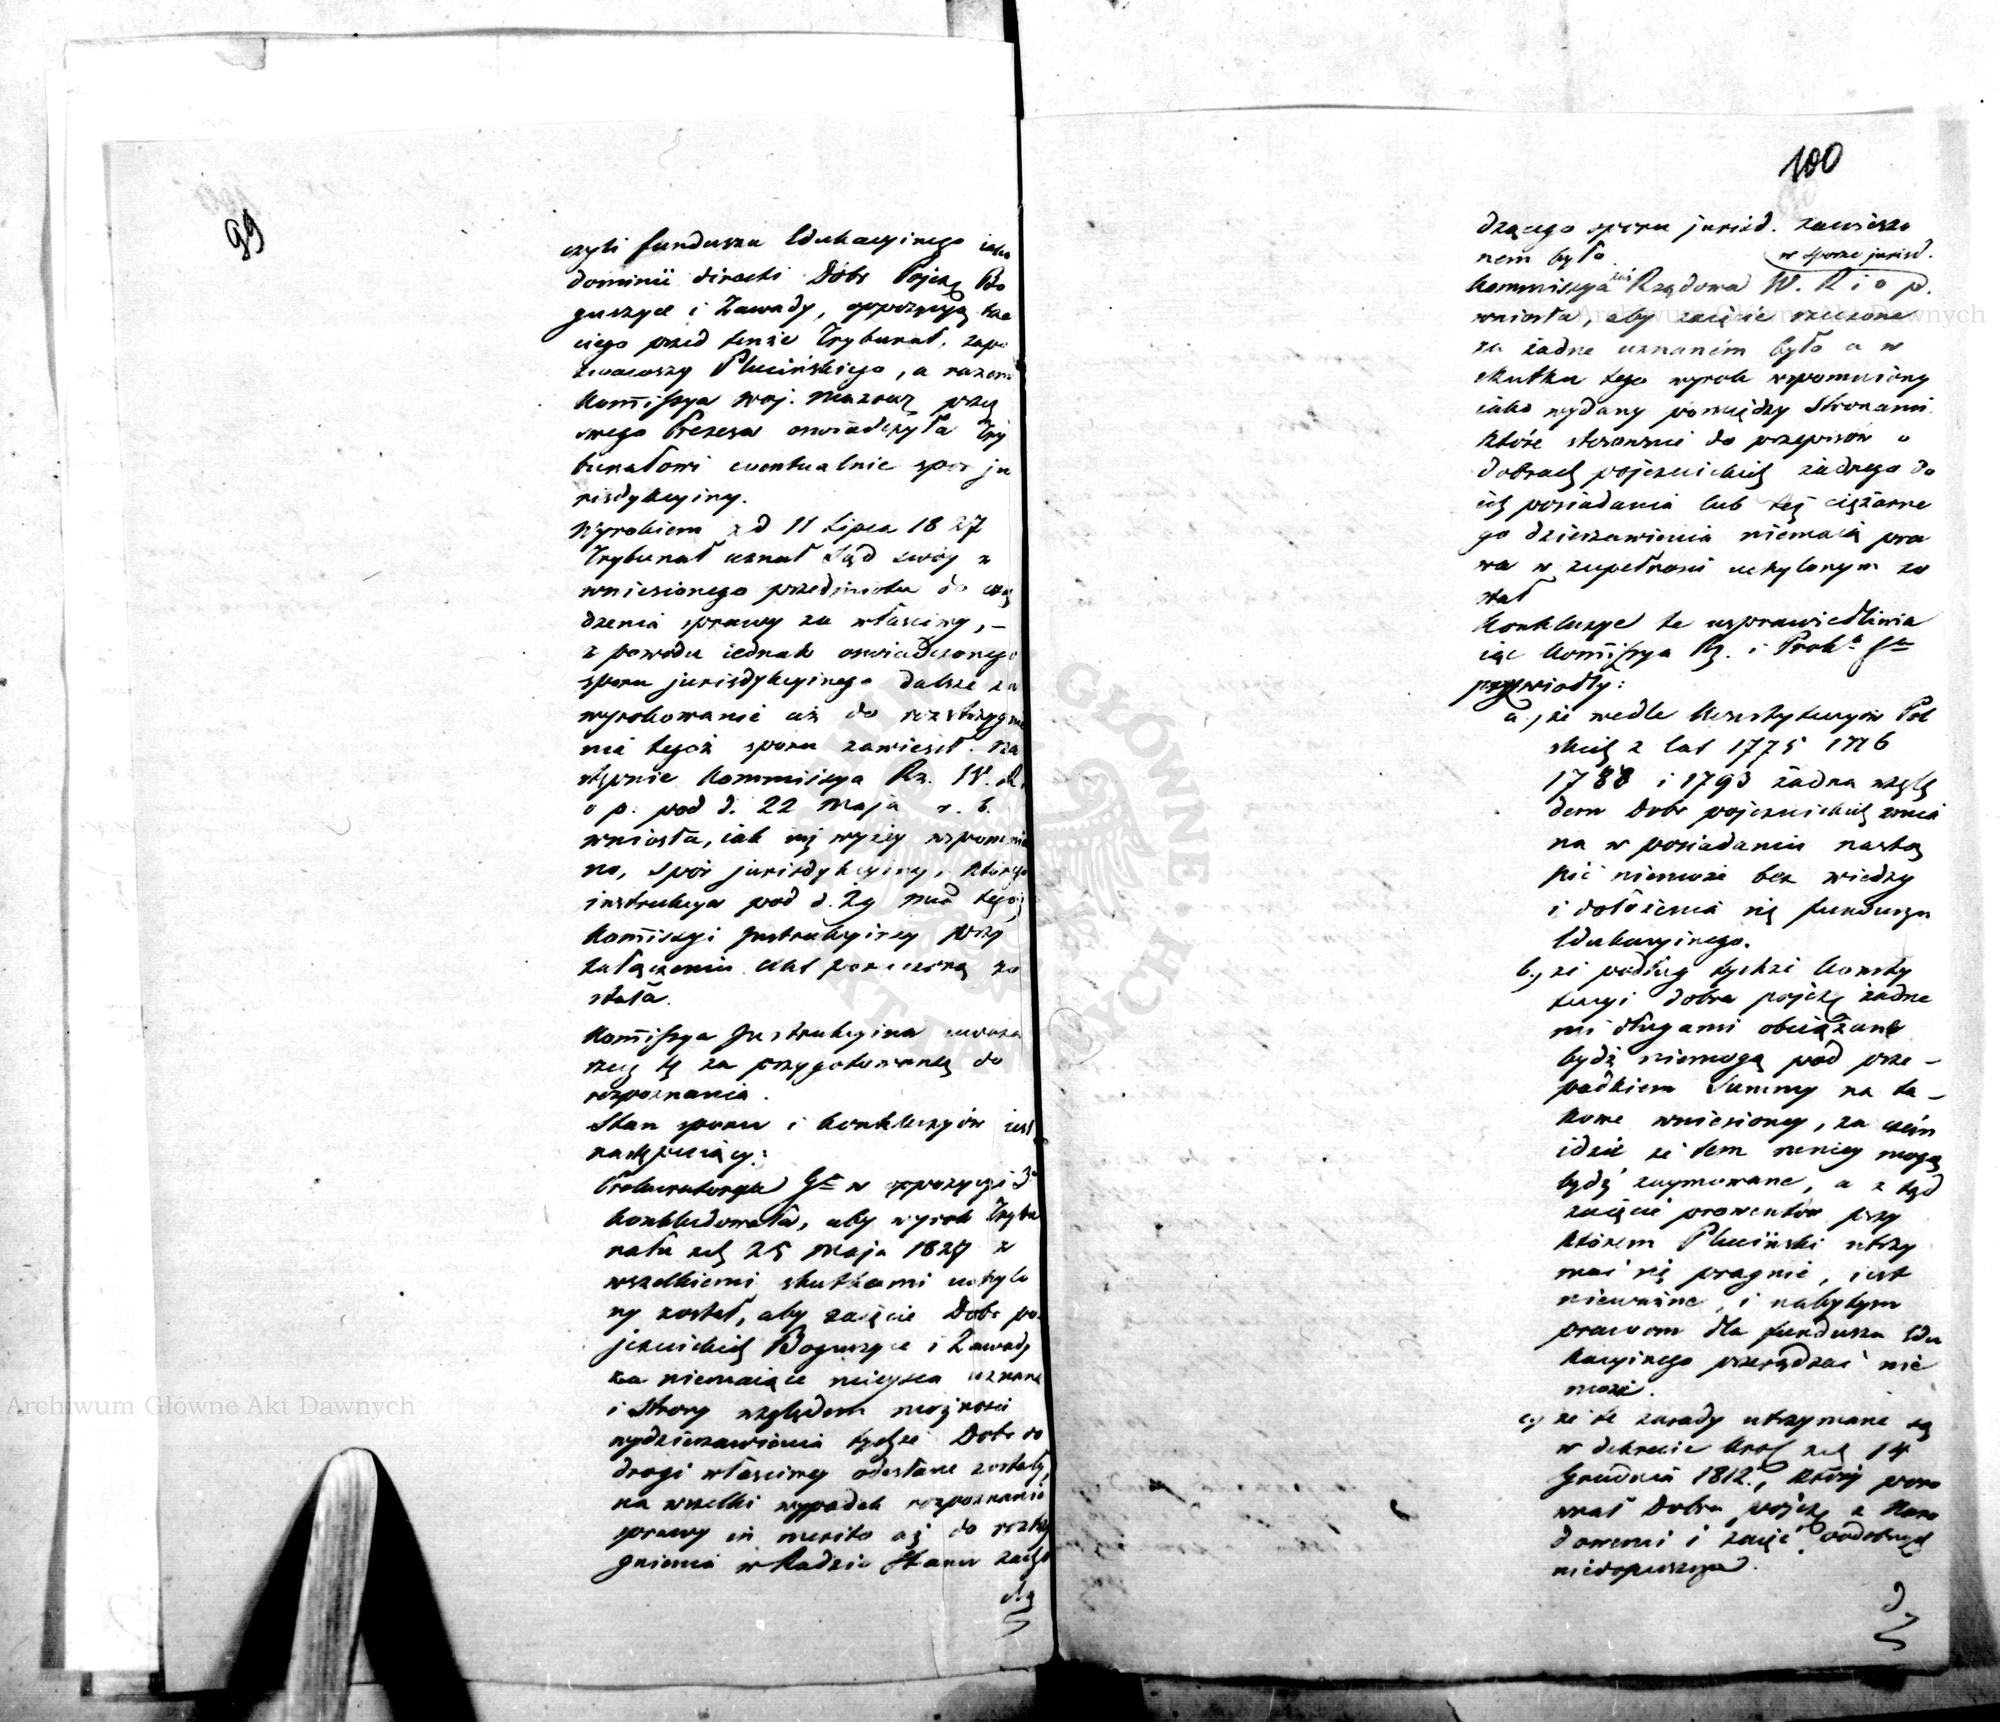 99
czyli funduszu Edukacyinego iako
dominii directi Dóbr Pojez. Bo
guszyce i Zawady, oppozycją trze
ciego przed tenże Trybunał, zapo
zwawszy Plucińskiego, a razem
Kommissya Woj. Mazow. przez
swego Prezesa oswiadczyła Try
bunałowi eventualnie spor ju
risdykcyiny.
Wyrokiem z d 11 Lipca 1827
Trybunał uznał Sąd swóy z
wniesionego przedmiotu do
dzenia sprawy za właściwy, –
z powodu iednak oswiadczonego
sporu jurisdykcyinego dalsze za
wyrokowanie aż do rozstrzygnie
nia tegoż sporu zawiesił. Na
stępnie Kommissya Rz. W. R.
o p. pod d. 22 Maja r. b.
wniosła, iak się wyżey wspomnia
no, spór jurisdykcyiny, którego
instrukcya pod d. 29 Maja tejże
Kommissyi Instrukcyiney przy
załączeniu akt poruczoną zo
stała.
Kommissya Instrukcyina uważa
rzecz tę za przygotowaną do
rozpoznania.
Stan sporu i konkluzyów iest
następuiący:
Prokuratorya Glna w oppozycyi 3o
konkludowała, aby wyrok Trybu
nału z d. 25 Maja 1827 z
wszelkiemi skutkami uchylo
ny został, aby zajęcie Dóbr po
jezuickich Boguszyce i Zawady
za niemaiące mieysca uznane
i Strony względem możności
wydzierzawienia tychże Dóbr do
drogi właściwey odesłane zostały,
na wszelki wypadek rozpoznanie
sprawy in merito aż do rozstrzy
gnienia w Radzie Stanu zacho
dzą
100
dzącego sporu jurisd. zawieszo
nem było.
w sporze jurisd.
Kommissya zaś Rządowa W. R i o p.
wniosła, aby zajęcie rzeczone
za żadne uznaném było a w
skutku tego wyrok wspomniony
iako wydany pomiędzy Stronami
które stosownie do przepisów o
dobrach pojezuickich żadnego do
ich posiadania lub też cięzarne
go dzierzawienia niemaią pra
wa w zupełności uchylonym zo
stał
Konkluzye te usprawiedliwia
iąc Kommissya Rz. i Prokra Glna
przywiodły:
a., że wedle Konstytucyów Pol
skich z lat 1775 1776
1788 i 1793 żadna wzglę
dem Dóbr pojezuickich zmia
na w posiadaniu nastą
pić niemoże bez wiedzy
i dołożenia się funduszu
Edukacyinego.
b., że podług tychże Konsty
tucyi dobra pojez. żadne
mi długami obciążane
bydź niemogą pod prze –
padkiem Summy na ta –
kowe wniesioney, za czém
idzie że tem mniey mogą
bydź zaymowane, a z tąd
zajęcie prowentów przy
którem Pluciński utrzy
mać się pragnie, iest
nieważne, i nabytym
prawom dla funduszu Edu
kacyinego przesądzać nie
może.
c., że te zasady utrzymane są
w dekrecie Król. z d. 14
Grudnia 1812., który poró
wnał Dobra pojez. z Naro
dowemi i zajęć podobnych
niedopuszcza.
d,
Archiwum Główne Akt Dawnych
Archiwum Główne Akt Dawnych